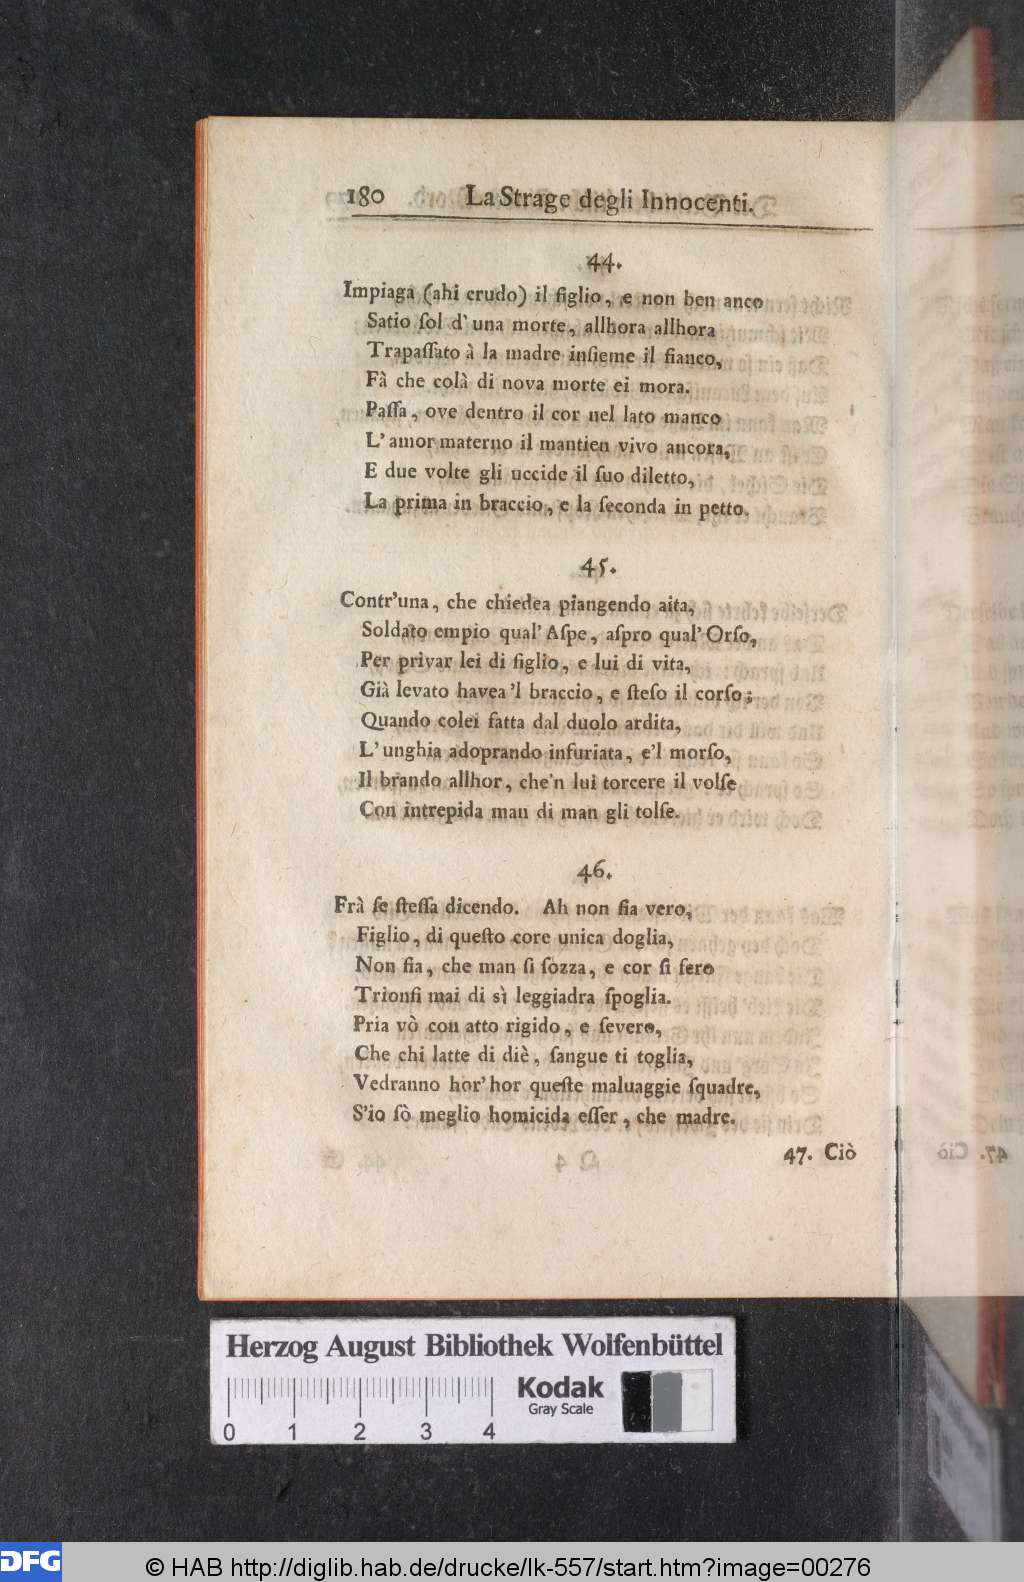 180 La Strage degli Innocenti.
44.
Impiaga (ahi crudo) il figlio, e non ben anco
Satio ſol d'una morte, allhora allhora
Trapaſſato à la madre inſieme il fianco,
Fà che colà di nova morte ei mora.
Paſſa, ove dentro il cor nel lato manco
L'amor materno il mantien vivo ancora,
E due volte gli uccide il ſuo diletto,
La prima in braccio, e la ſeconda in petto.
45.
Contr'una, che chiedea piangendo aita,
Soldato empio qual' Aſpe, aſpro qual' Orſo,
Per privar lei di figlio, e lui di vita,
Già levato havea'l braccio, e ſteſo il corſo;
Quando colei fatta dal duolo ardita,
L'unghia adoprando infuriata, e'l morſo,
Il brando allhor, che'n lui torcere il volſe
Con intrepida man di man gli tolſe.
46.
Frà ſe ſteſſa dicendo. Ah non ſia vero,
Figlio, di queſto core unica doglia,
Non ſia, che man ſi ſozza, e cor ſi fero
Trionfi mai di sì leggiadra ſpoglia.
Pria vò con atto rigido, e ſevero,
Che chi latte di diè, ſangue ti toglia,
Vedranno hor'hor queſte maluaggie ſquadre,
S'io ſò meglio homicida eſſer, che madre.
47. Ciò
Herzog August Bibliothek Wolfenbüttel
Kodak
Gray Scale
0 1 2 3 4
DFG
© HAB http://diglib.hab.de/drucke/lk-557/start.htm?image=00276